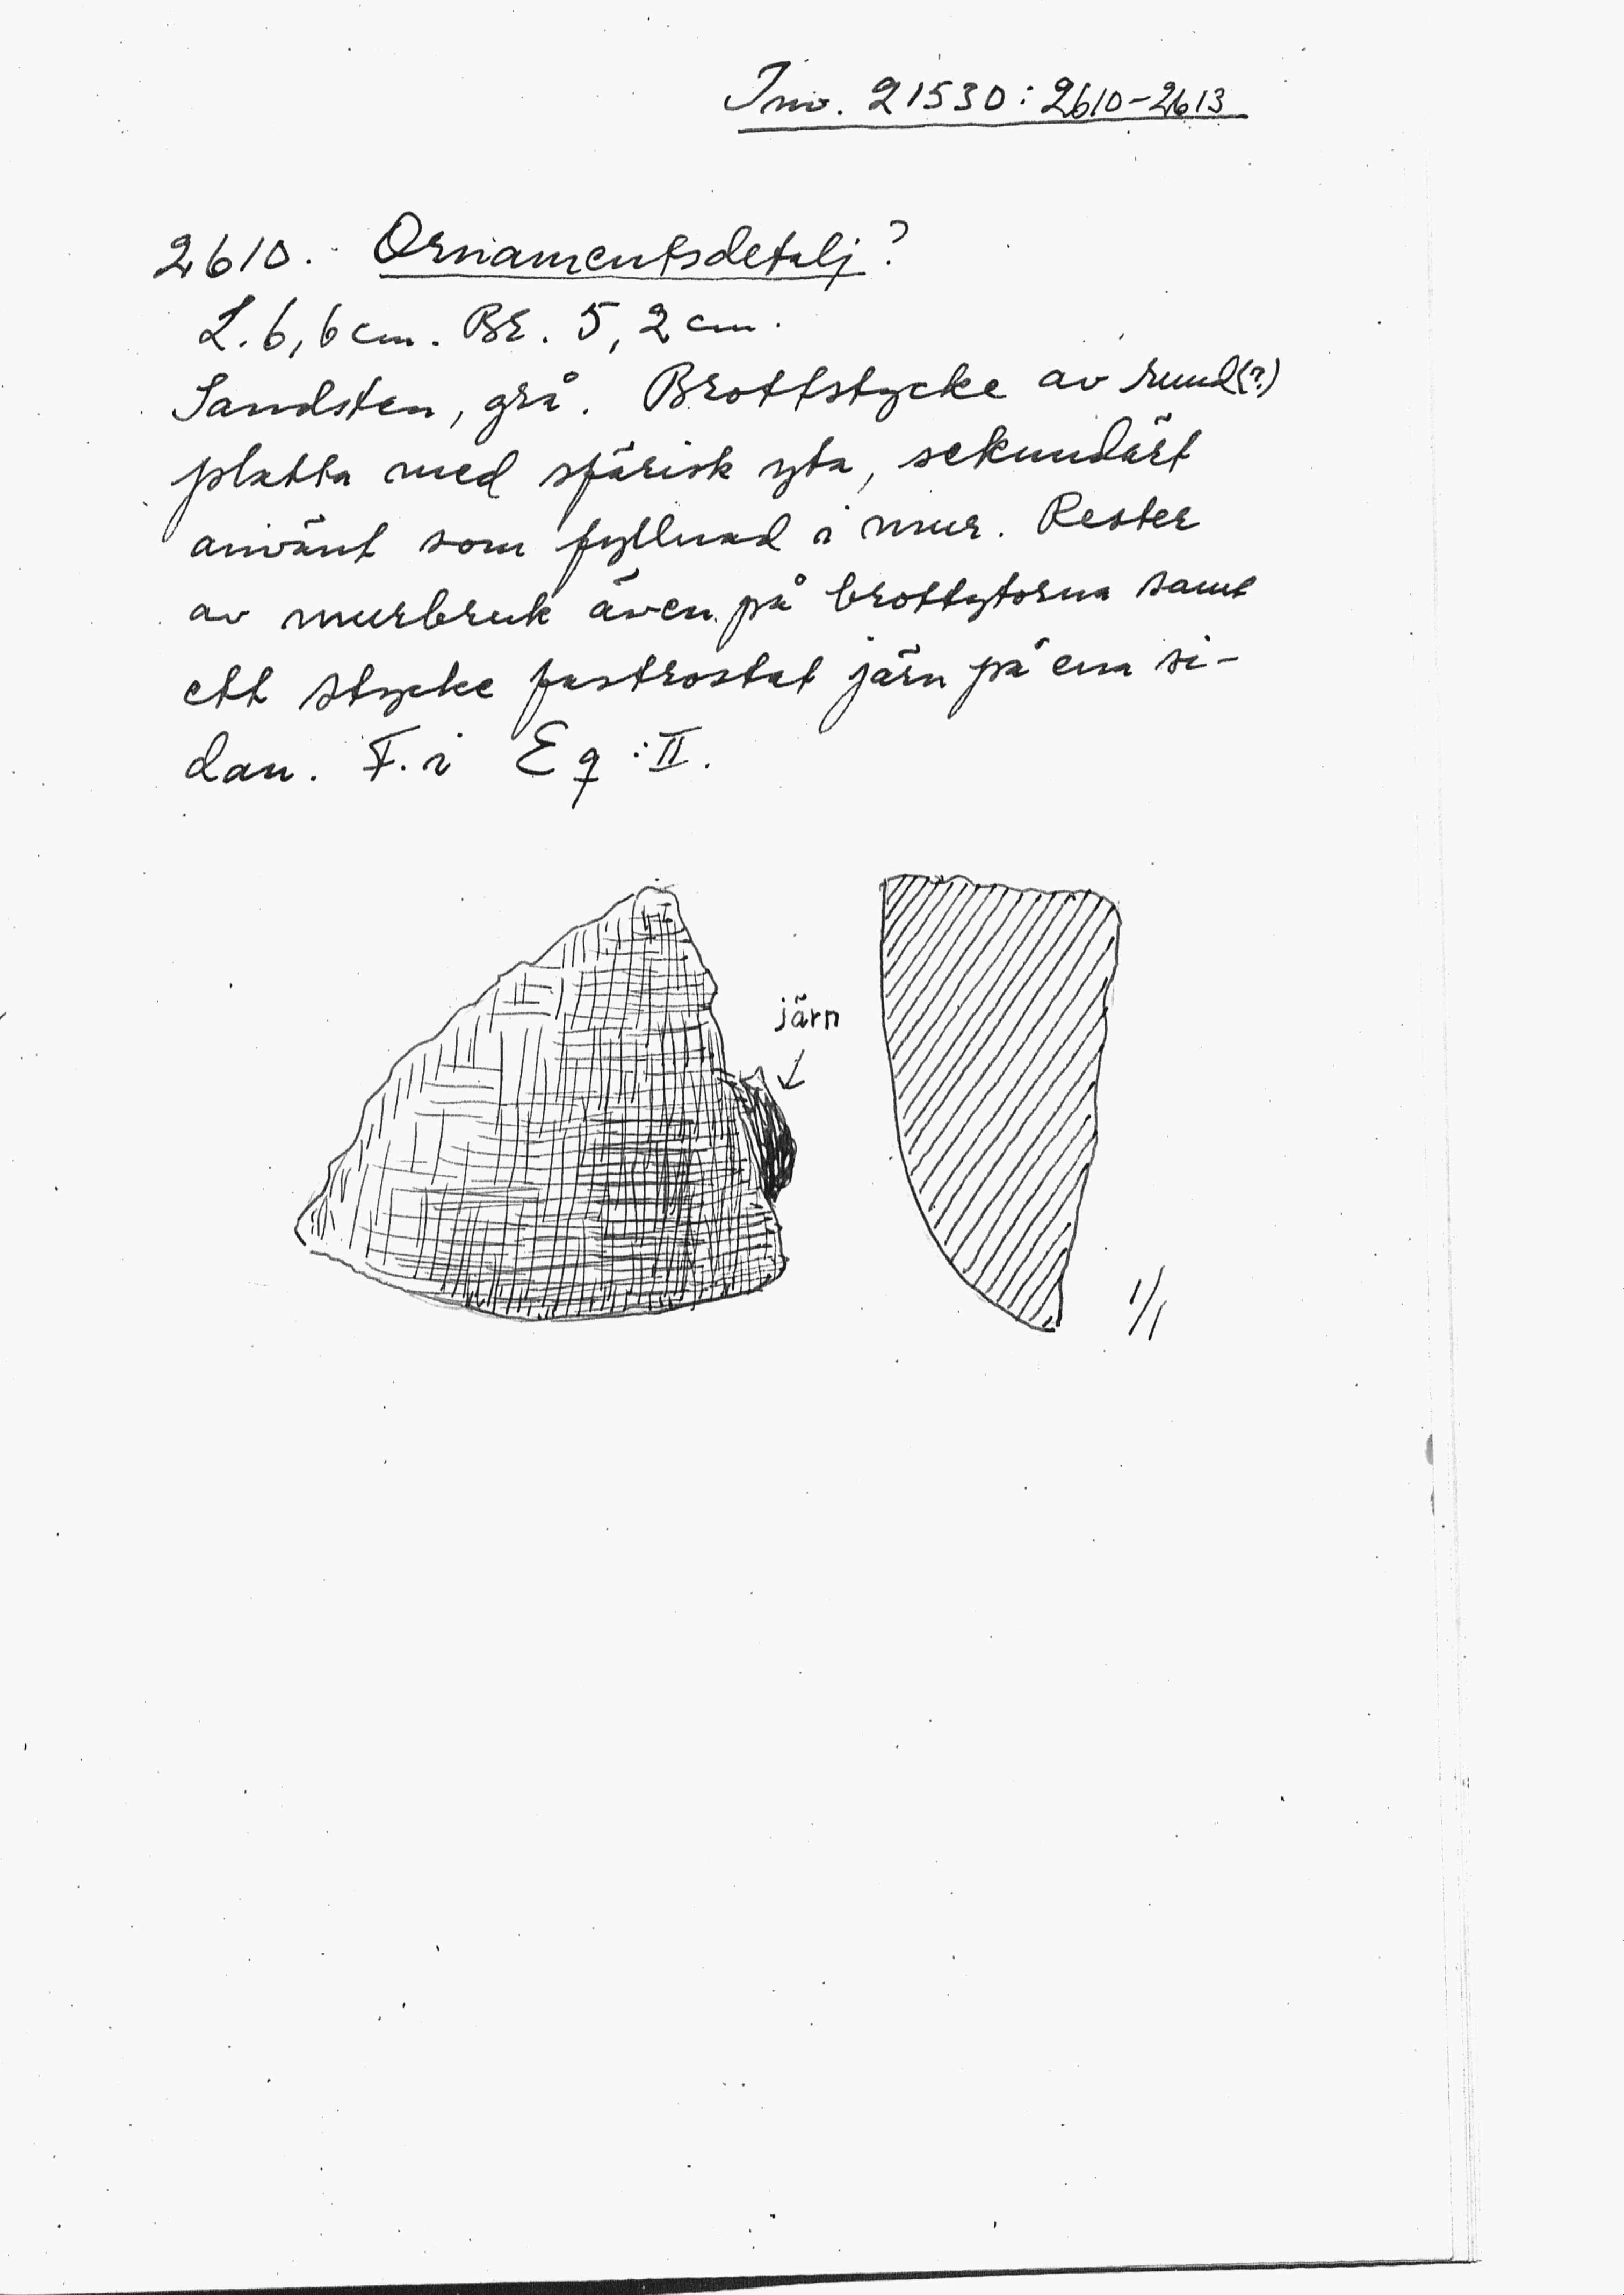 Inv. 21530:2610-2613
2610. Ornamentsdetalj?
L. 6,6 cm. Br. 5,2 cm.
Sandsten, grå. Brottstycke av rund(?)
platta med sfärisk yta, sekundärt
använt som fyllnad i mur. Rester
av murbruk även på brottytorna samt
ett stycke fastrostat järn på ena si-
dan. F. i Eq:II.
järn
1/1